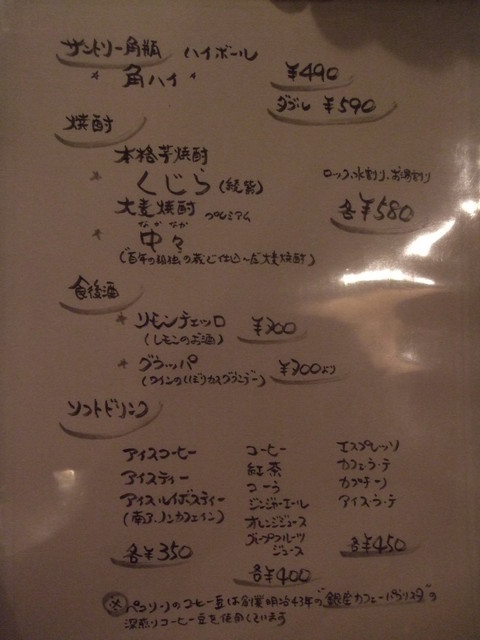 サントリー角瓶 ハイボール
* 角ハイ *
¥490
ダブル ¥590
焼酎
本格芋焼酎
* くじら
ロック、水割り、お湯割り
各¥580
大麦焼酎 プレミアム
なか なか
* 中々
食後酒
* リモンチェッロ ¥700
(レモンのお酒)
* グラッパ ¥700より
(ワインのしぼりカスブランデー)
ソフトドリンク
アイスコーヒー
アイスティー
アイスルイボスティー
(南ア、ノンカフェイン)
各¥350
コーヒー
紅茶
コーラ
ジンジャーエール
オレンジジュース
グレープフルーツ
ジュース
各¥400
エスプレッソ
カフェラ・テ
カプチーノ
アイスラ・テ
各¥450
のコーヒー豆は創業明治43年"銀座カフェーパウリスタ"の
深煎りコーヒー豆を使用しています